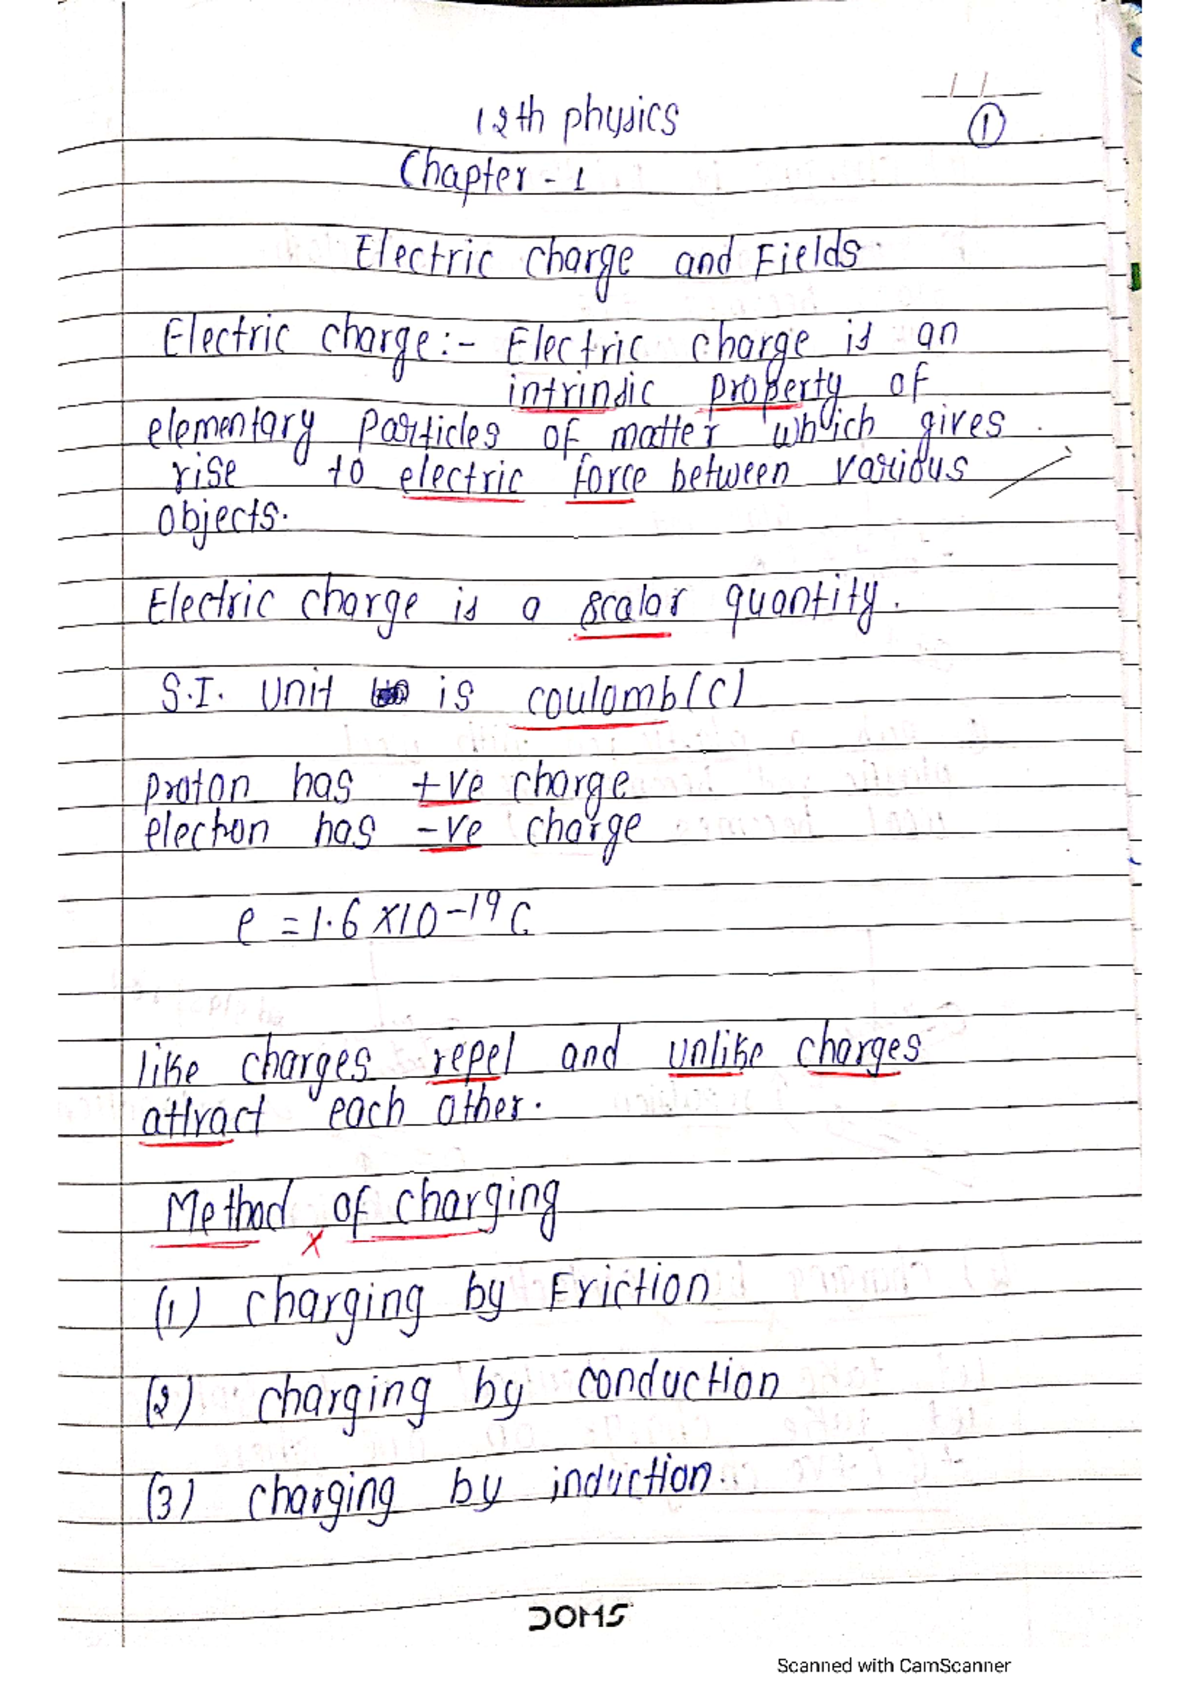 12th physics
1
Chapter - 1
Electric charge and Fields
Electric charge:- Electric charge is an
intrinsic property of
elementary particles of matter which gives
rise to electric force between various
objects.
Electric charge is a scalar quantity.
S.I. unit is coulomb(C)
proton has +ve charge
electron has -ve charge
e = 1.6 X10-19 C
like charges repel and unlike charges
attract each other.
Method of charging
(1) charging by Friction
(2) charging by conduction
(3) charging by induction.
DOMS
Scanned with CamScanner